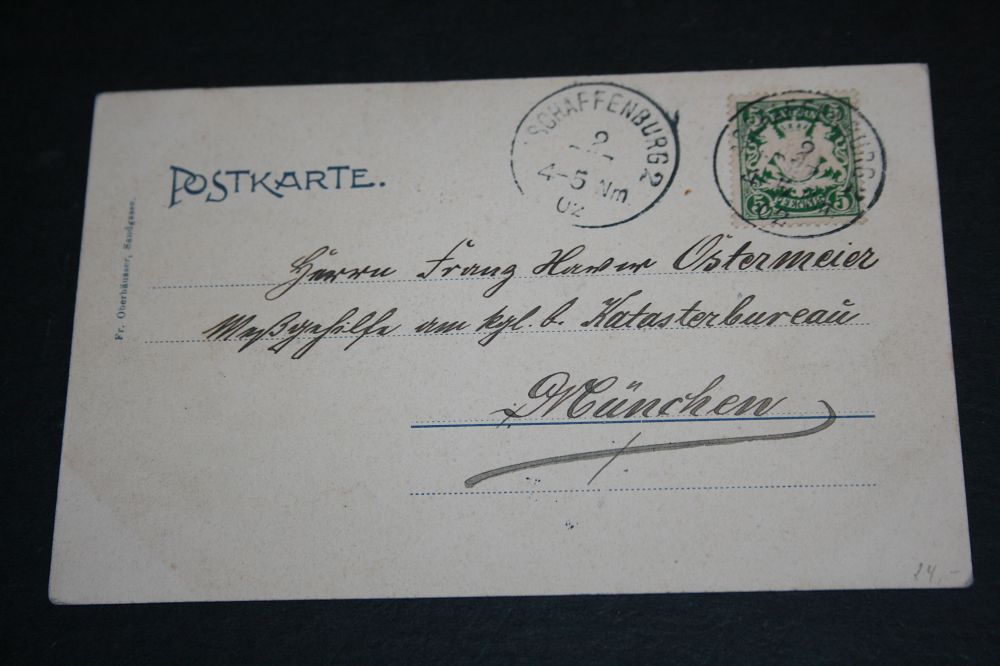 POSTKARTE.
SCHAFFENBURG 2
9
4-5 Nm.
02
BAYERN
5 5
5 PFENNIG 5
9
02
Herrn Franz Xaver Ostermeier
Meßgehilfe am kgl. b. Katasterbureau
München
Fr. Oberhäusser, Sandgasse.
24,-